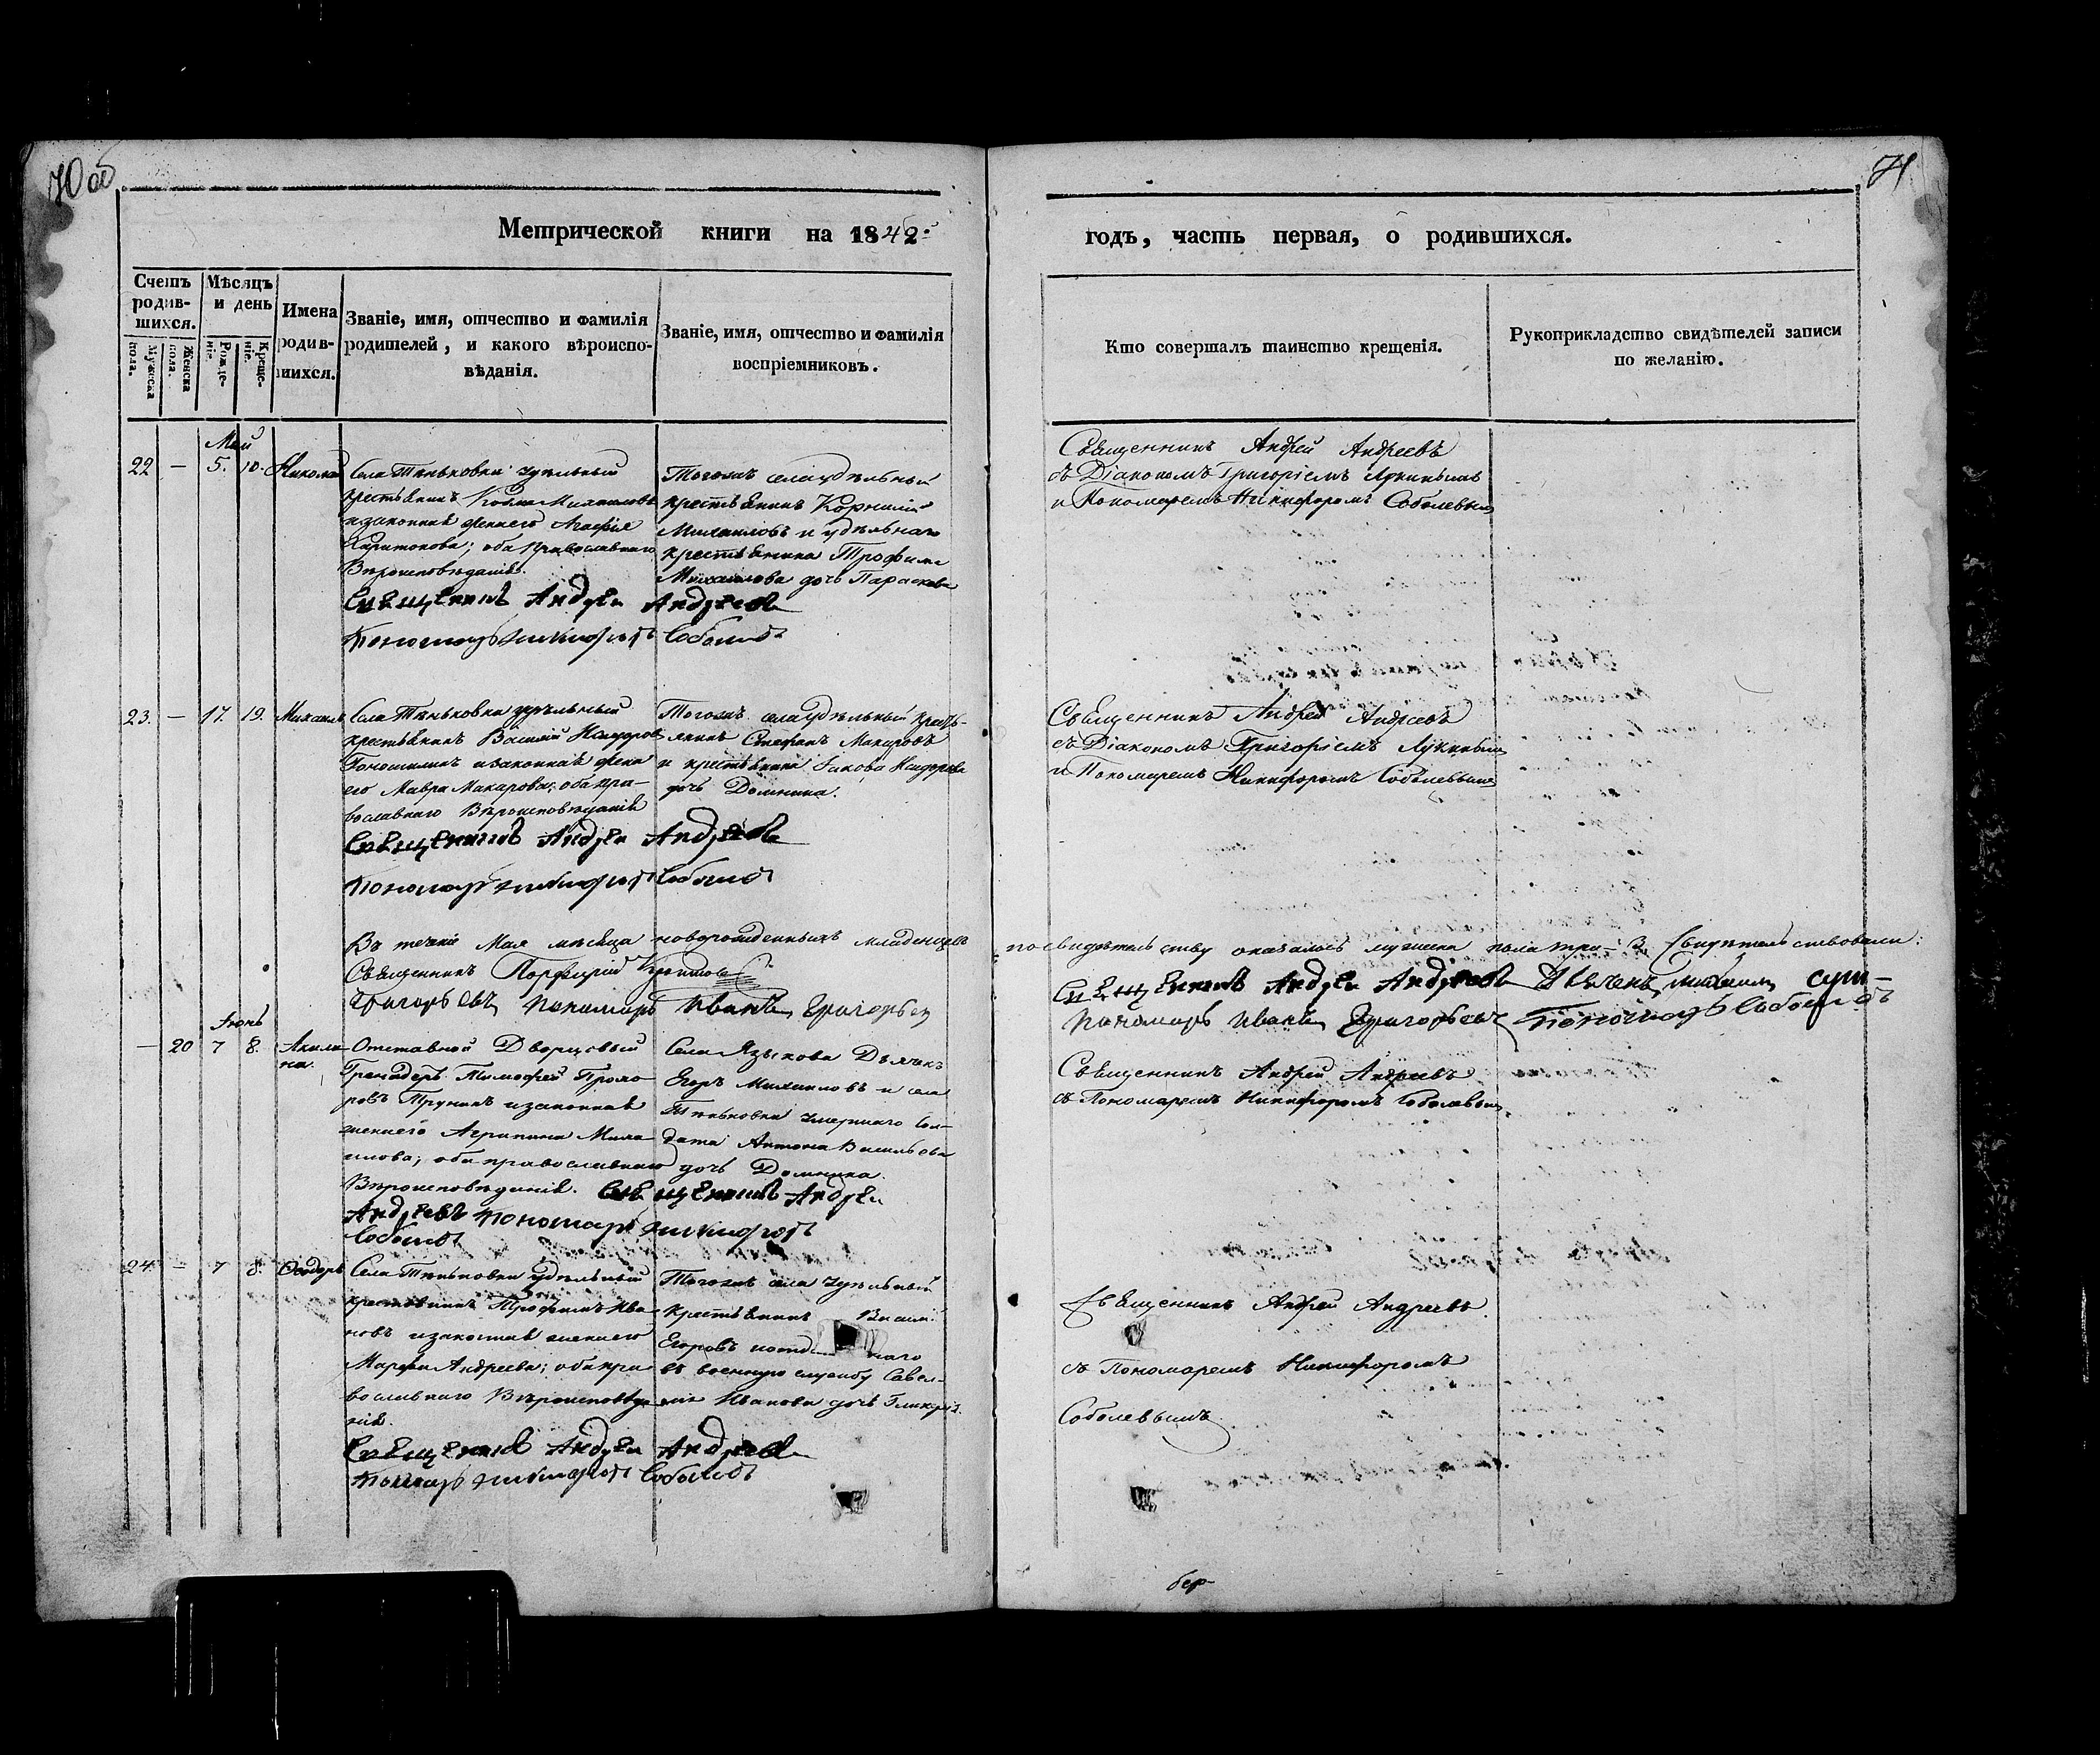 70 об
71
Метрической книги на 1842.
годъ, часть первая, о родившихся.
Счетъ родив-шихся.
Мужеска пола.
Женска пола.
Мѣсяцъ и день
Рожде-ніе.
Креще-ніе.
Имена родив-шихся.
Званіе, имя, отчество и фамилія
родителей, и какого вѣроиспо-
вѣданія.
Званіе, имя, отчество и фамилія
воспріемниковъ.
Кто совершалъ таинство крещенія.
Рукоприкладство свидѣтелей записи
по желанію.
Май
22 — 5. 10. Николай
Села Тѣньковки удѣльный
крестьянинъ Козма Михайловъ
и законная жена его Агафія
Харитонова; оба православнаго
Вѣроисповѣданія.
Тогожъ села удѣльный
крестьянинъ Корнилій
Михайловъ и удѣльнаго
крестьянина Трофима
Михайлова дочь Параскева
Священникъ Андрей Андреевъ
Пономарь Никифоръ Соболевъ
Священникъ Андрей Андреевъ
съ Діакономъ Григоріемъ Лукинымъ
и Пономаремъ Никифоромъ Соболевымъ
23. — 17. 19. Михаилъ
Села Тѣньковки удѣльный
крестьянинъ Василій Исидоровъ
и законная жена
его Мавра Макарова; оба пра-
вославнаго Вѣроисповѣданія
Тогожъ села удѣльный кресть-
янинъ Стефанъ Макаровъ
и крестьянина Іакова Исидорова
дочь Домника.
Священникъ Андрей Андреевъ
Пономарь Никифоръ Соболевъ
Священникъ Андрей Андреевъ
съ Діакономъ Григоріемъ Лукинымъ
и Пономаремъ Никифоромъ Соболевымъ
Въ теченіе Мая мѣсяца новорожденныхъ младенцевъ по свидѣтельству оказалось мужеска пола три — 3. Свидѣтельствовали:
Священникъ Порфирій
Григорьевъ Пономарь Иванъ Григорьевъ
Священникъ Андрей Андреевъ
Пономарь Иванъ Григорьевъ Пономарь Соболевъ
Іюнь
— 20 7 8. Акили-
на.
Отставной Дворцовый
Гренадеръ Тимофей Прохо-
ровъ Трунинъ и законная
жена его Агрипина Миха-
илова; оба православнаго
Вѣроисповѣданія.
Села Языкова Дьячекъ
Егоръ Михаиловъ и села
Тѣньковки умершаго сол-
дата Антона Васильева
дочь Домника.
Священникъ Андрей
Андреевъ Пономарь Никифоръ
Соболевъ
Священникъ Андрей Андреевъ
съ Пономаремъ Никифоромъ Соболевымъ
24. — 7 8. Ѳеодоръ
Села Тѣньковки удѣльный
крестьянинъ Трофимъ Ива-
новъ и законная жена его
Марфа Андреева; оба пра-
вославнаго Вѣроисповѣда-
нія.
Тогожъ села удѣльный
крестьянинъ Васил
Егоровъ и отд наго
въ военную службу Савел-
ія Иванова дочь Гликерія.
Священникъ Андрей Андреевъ
Пономарь Никифоръ Соболевъ
Священникъ Андрей Андреевъ
съ Пономаремъ Никифоромъ
Соболевымъ